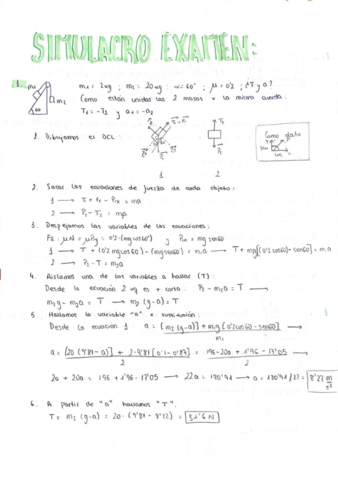 SIMULACRO EXAMEN:
1. m₁ = 2kg ; m₂ = 20kg ; α = 60° ; μ = 0'2 ; ¿T y a?
Como están unidas las 2 masas x la misma cuerda:
T₁ = -T₂ ; a₁ = -a₂
m₁
m₂
60
1. Dibujamos el DCL:
1
2
2. Sacar las ecuaciones de fuerza de cada objeto:
1 → T + Fr - Px = ma
2 → P₂ - T₂ = ma
3. Despejamos las variables de las ecuaciones:
Fr: μN = μPy = 0'2·(mg cos60) ; Px = mg sen60
1 → T + (0'2 mg cos60) - (mg sen60) = m₁a → T + mg[(0'2 cos60) - sen60] = m₁a
2 → P₂ - T = m₂a
4. Aislamos una de las variables a hallar (T):
Desde la ecuación 2 xq es + corta: P₂ - m₂a = T →
m₂g - m₂a = T → m₂ (g-a) = T
5. Hallamos la variable "a" x sustitución:
Desde la ecuación 1 a = [m₂ (g-a)] + m₁g [0'2cos60 - sen60] / m₁ →
a = [20 (9'81 - a)] + 2·9'81 [0'1 - 0'87] / 2 = 196 - 20a + 1'96 - 17'05 / 2 →
2a + 20a = 196 + 1'96 - 17'05 → 22a = 180'91 → a = 180'91/22 = 8'22 m/s²
6. A partir de "a" hallamos "T":
T = m₂ (g-a) = 20·(9'81 - 8'22) = 31'6 N